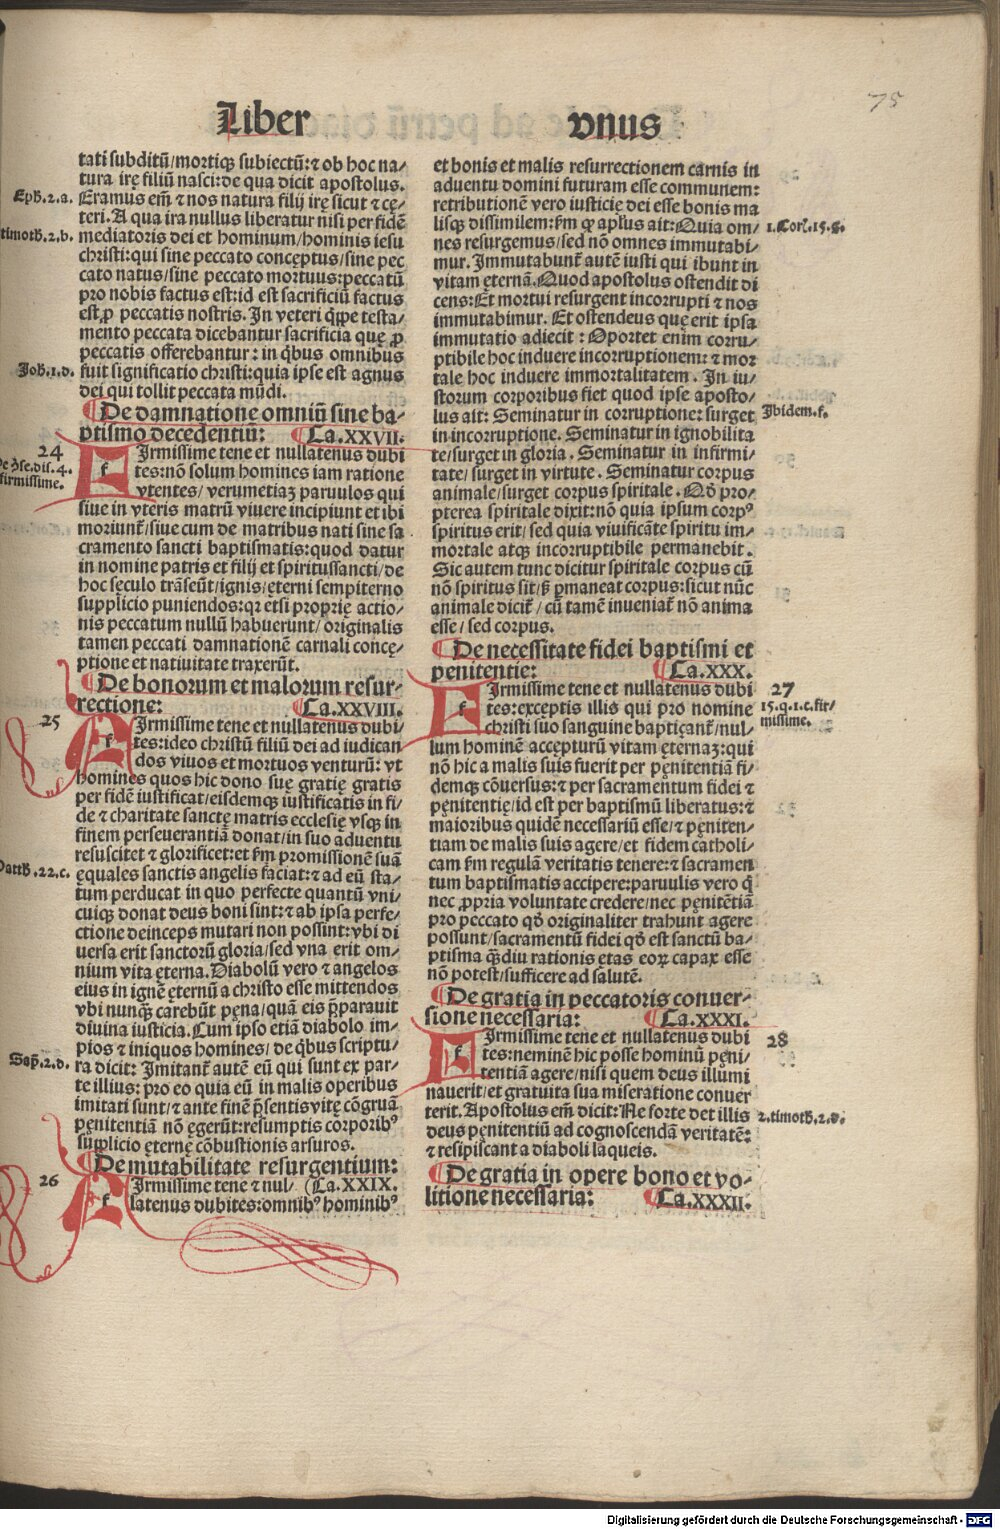 75
Liber
vnus
tati subditū/mortiqꝫ subiectū:⁊ ob hoc na/
tura irę filiū nasci:de qua dicit apostolus.
Eph.2.a.
Eramus em̄ ⁊ nos natura filij irę sicut ⁊ cę/
teri. A qua ira nullus liberatur nisi per fidē
timoth.2.b.
mediatoris dei et hominum/hominis iesu
christi:qui sine peccato conceptus/sine pec
cato natus/sine peccato mortuus:peccatū
pro nobis factus est:id est sacrificiū factus
est ꝓ peccatis nostris. In veteri q̄ppe testa/
mento peccata dicebantur sacrificia quę ꝓ
peccatis offerebantur: in q̄bus omnibus
Joh.1.d.
fuit significatio christi:quia ipse est agnus
dei qui tollit peccata mūdi.
¶ De damnatione omniū sine ba-
ptismo decedentiū: ¶ Ca.XXVII.
24
De ꝯse.dis.4.
firmissime.
FIrmissime tene et nullatenus dubi
tes:nō solum homines iam ratione
vtentes/ verumetiaꝫ paruulos qui
siue in vteris matrū viuere incipiunt et ibi
moriunt̄/siue cum de matribus nati sine sa
cramento sancti baptismatis:quod datur
in nomine patris et filij et spiritussancti/de
hoc sęculo trāseūt/ignis/ęterni sempiterno
supplicio puniendos:qꝛ etsi proprię actio/
nis peccatum nullū habuerunt/ originalis
tamen peccati damnationē carnali concę/
ptione et natiuitate traxerūt.
¶ De bonorum et malorum resur-
rectione: ¶ Ca.XXVIII.
25
FIrmissime tene et nullatenus dubi/
tes:ideo christū filiū dei ad iudican
dos viuos et mortuos venturū: vt
homines quos hic dono suę gratię gratis
per fidē iustificat/eisdemqꝫ iustificatis in fi/
de ⁊ charitate sanctę matris ecclesię vsqꝫ in
finem perseuerantiā donat/in suo aduentu
resuscitet ⁊ glorificet:et ẜm promissionē suā
Matth.22.c.
ęquales sanctis angelis faciat:⁊ ad eū sta/
tum perducat in quo perfecte quantū vni/
cuiqꝫ donat deus boni sint:⁊ ab ipsa perfe/
ctione deinceps mutari non possint:vbi di
uersa erit sanctorū gloria/sed vna erit om/
nium vita ęterna. Diabolū vero ⁊ angelos
eius in ignē ęternū a christo esse mittendos
vbi nunqꝫ carebūt pęna/quā eis p̄parauit
diuina iusticia. Cum ipso etiā diabolo im/
pios ⁊ iniquos homines/ de q̄bus scriptu/
Sap.2.d.
ra dicit: Imitant̄ autē eū qui sunt ex par/
te illius: pro eo quia eū in malis operibus
imitati sunt/⁊ ante finē p̄sentis vitę cōgruā
pęnitentiā nō ęgerūt:resumptis corporibꝰ
supplicio ęternę cōbustionis arsuros.
¶ De mutabilitate resurgentium:
26
FIrmissime tene ⁊ nul/ (Ca.XXIX.
latenus dubites:omnibꝰ hominibꝰ
et bonis et malis resurrectionem carnis in
aduentu domini futuram esse communem:
retributionē vero iusticię dei esse bonis ma
lisqꝫ dissimilem:ẜm qꝫ apl̄us ait:Quia om/
1.Cor.15.g.
nes resurgemus/sed nō omnes immutabi/
mur. Immutabunt̄ autē iusti qui ibunt in
vitam ęternā. Quod apostolus ostendit di
cens:Et mortui resurgent incorrupti ⁊ nos
immutabimur. Et ostendeus quę erit ipsa
immutatio adiecit : Oportet enim corru/
ptibile hoc induere incorruptionem: ⁊ mor
tale hoc induere immortalitatem . In iu/
storum corporibus fiet quod ipse aposto/
lus ait: Seminatur in corruptione: surget
Ibidem.f.
in incorruptione. Seminatur in ignobilita
te/surget in gloria . Seminatur in infirmi/
tate/ surget in virtute . Seminatur corpus
animale/surget corpus spiritale . Qđ pro/
pterea spiritale dixit:nō quia ipsum corpꝰ
spiritus erit/ sed quia viuificāte spiritu im/
mortale atqꝫ incorruptibile permanebit .
Sic autem tunc dicitur spiritale corpus cū
nō spiritus sit/ß ꝑmaneat corpus:sicut nūc
animale dicit̄/ cū tamē inueniat̄ nō anima
esse/ sed corpus.
¶ De necessitate fidei baptismi et
penitentie: ¶ Ca.XXX.
27
FIrmissime tene et nullatenus dubi
15.q.1.c.fir/
missime.
tes:exceptis illis qui pro nomine
christi suo sanguine baptiçant̄/nul/
lum hominē accepturū vitam ęternaꝫ:qui
nō hic a malis suis fuerit per pęnitentiā fi/
demqꝫ cōuersus:⁊ per sacramentum fidei ⁊
pęnitentię/id est per baptismū liberatus:⁊
maioribus quidē necessariū esse/⁊ pęniten/
tiam de malis suis agere/et fidem catholi/
cam ẜm regulā veritatis tenere:⁊ sacramen
tum baptismatis accipere:paruulis vero q̄
nec ꝓpria voluntate credere/nec pęnitētiā
pro peccato qđ originaliter trahunt agere
possunt/sacramentū fidei qđ est sanctū ba/
ptisma qꝫdiu rationis ętas eoꝝ capax esse
nō potest/sufficere ad salutē.
¶ De gratia in peccatoris conuer-
sione necessaria: ¶ Ca.XXXI.
28
FIrmissime tene et nullatenus dubi
tes:neminē hic posse hominū pęni/
tentiā agere/nisi quem deus illumi
nauerit/et gratuita sua miseratione conuer
terit. Apostolus em̄ dicit:Ne forte det illis
2.timoth.2.d.
deus pęnitentiū ad cognoscendā veritatē:
⁊ resipiscant a diaboli laqueis.
¶ De gratia in opere bono et vo-
litione necessaria: ¶ Ca.XXXII.
Digitalisierung gefördert durch die Deutsche Forschungsgemeinschaft - DFG